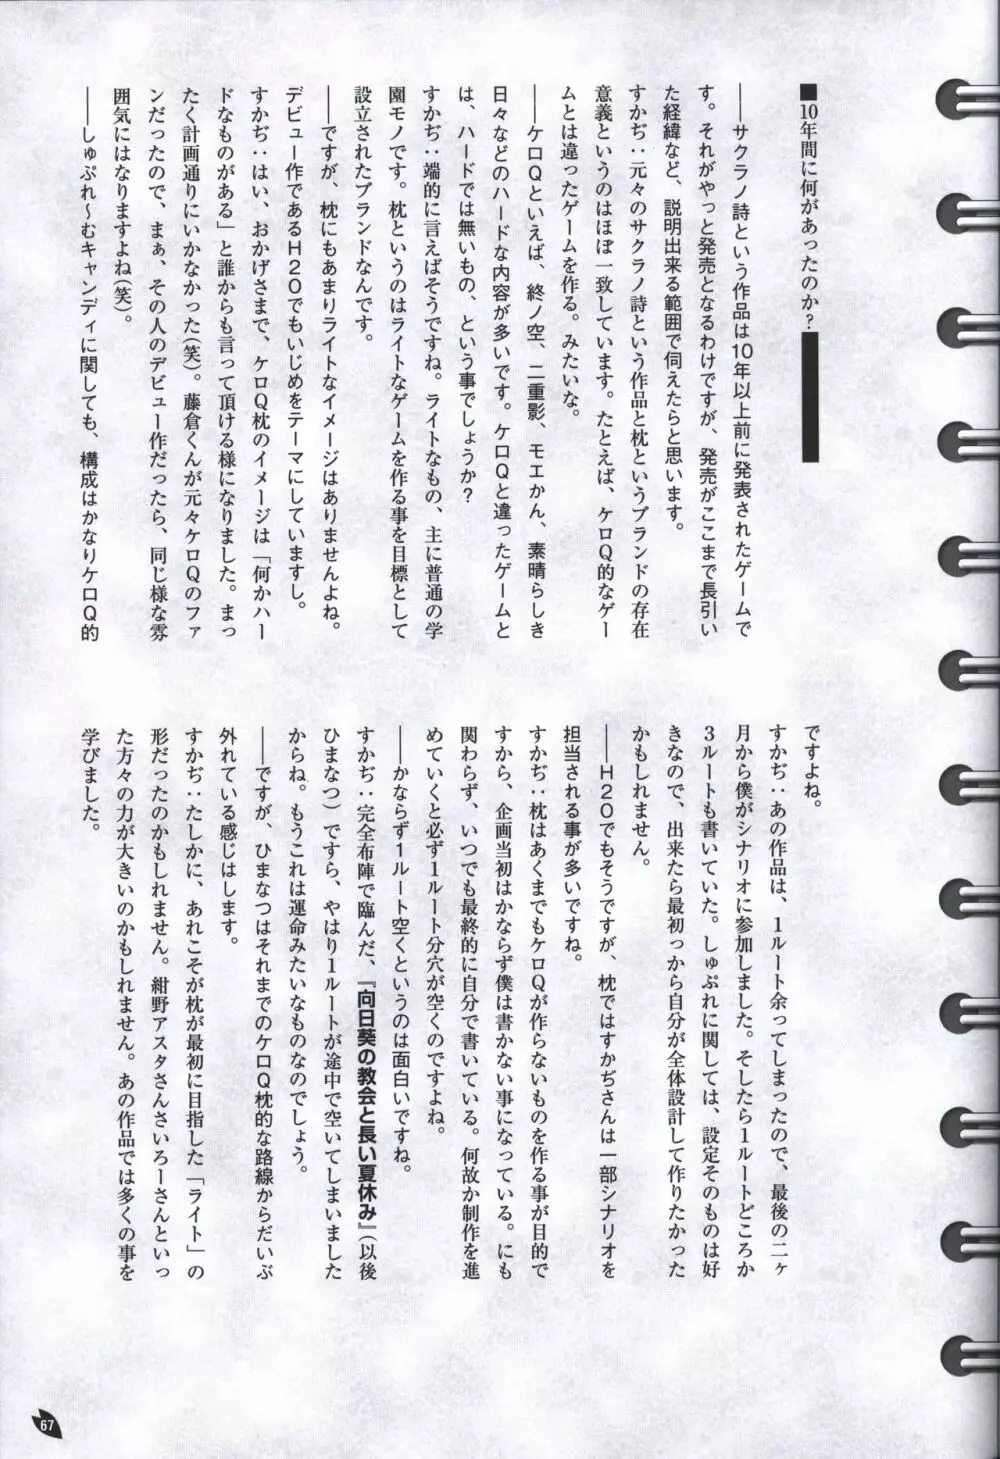 ■10年間に何があったのか?
――サクラノ詩という作品は10年以上前に発表されたゲームで
す。それがやっと発売となるわけですが、発売がここまで長引い
た経緯など、説明出来る範囲で伺えたらと思います。
すかぢ：元々のサクラノ詩という作品と枕というブランドの存在
意義というのはほぼ一致しています。たとえば、ケロQ的なゲー
ムとは違ったゲームを作る。みたいな。
――ケロQといえば、終ノ空、二重影、モエかん、素晴らしき
日々などのハードな内容が多いです。ケロQと違ったゲームと
は、ハードでは無いもの、という事でしょうか?
すかぢ：端的に言えばそうですね。ライトなもの、主に普通の学
園モノです。枕というのはライトなゲームを作る事を目標として
設立されたブランドなんです。
――ですが、枕にもあまりライトなイメージはありませんよね。
デビュー作であるH2Oでもいじめをテーマにしていますし。
すかぢ：はい、おかげさまで、ケロQ枕のイメージは「何かハー
ドなものがある」と誰からも言って頂ける様になりました。まっ
たく計画通りにいかなかった(笑)。藤倉くんが元々ケロQのファ
ンだったので、まぁ、その人のデビュー作だったら、同じ様な雰
囲気にはなりますよね(笑)。
――しゅぷれ～むキャンディに関しても、構成はかなりケロQ的
ですよね。
すかぢ：あの作品は、1ルート余ってしまったので、最後の二ヶ
月から僕がシナリオに参加しました。そしたら1ルートどころか
3ルートも書いていた。しゅぷれに関しては、設定そのものは好
きなので、出来たら最初っから自分が全体設計して作りたかった
かもしれません。
――H2Oでもそうですが、枕ではすかぢさんは一部シナリオを
担当される事が多いですね。
すかぢ：枕はあくまでもケロQが作らないものを作る事が目的で
すから、企画当初はかならず僕は書かない事になっている。にも
関わらず、いつでも最終的に自分で書いている。何故か制作を進
めていくと必ず1ルート分穴が空くのですよね。
――かならず1ルート空くというのは面白いですね。
すかぢ：完全布陣で臨んだ、『向日葵の教会と長い夏休み』(以後
ひまなつ)ですら、やはり1ルートが途中で空いてしまいました
からね。もうこれは運命みたいなものなのでしょう。
――ですが、ひまなつはそれまでのケロQ枕的な路線からだいぶ
外れている感じはします。
すかぢ：たしかに、あれこそが枕が最初に目指した「ライト」の
形だったのかもしれません。紺野アスタさんさいろーさんといっ
た方々の力が大きいのかもしれません。あの作品では多くの事を
学びました。
67